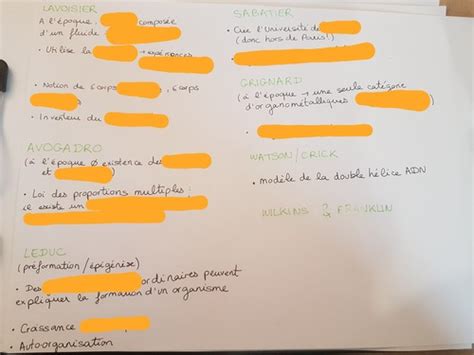 LAVOISIER
A l'époque, composée
d'un fluide
• Utilise la → expériences
• Notion de corps , corps
• Inventeur du
AVOGADRO
(à l'époque Ø existence des
et
• Loi des proportions multiples :
il existe un
LEDUC
(préformation / épigénèse)
• Des ordinaires peuvent
expliquer la formation d'un organisme
• Croissance
• Autoorganisation
SABATIER
• Crée l'Université de
(donc hors de Paris!)
GRIGNARD
(à l'époque → une seule catégorie
d'organométalliques
WATSON/CRICK
• modèle de la double hélice ADN
WILKINS & FRANKLIN